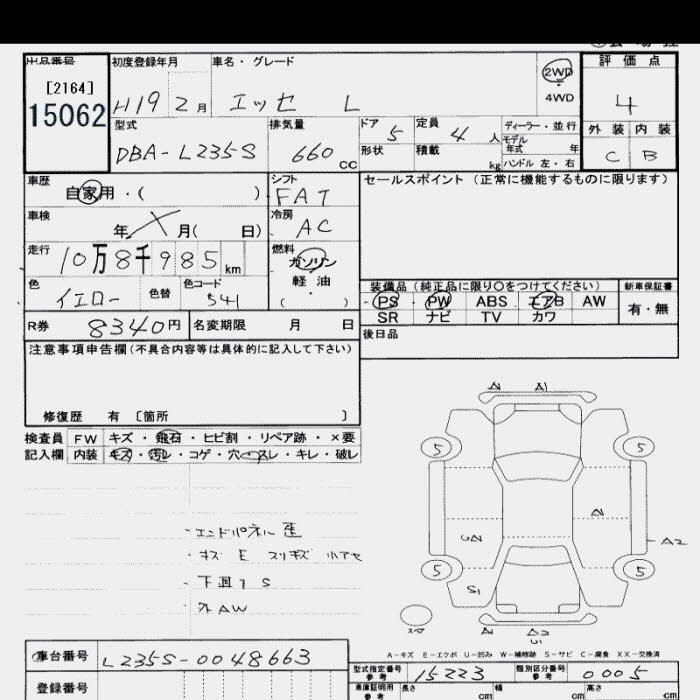 出品番号 初度登録年月 車名・グレード 2WD 評価点
[2164]
15062 H19 2月 エッセ L 4WD 4
型式 排気量 ドア 5 定員 4人 ディーラー・並行 外装 内装
モデル年式 年
DBA-L235S 660cc 形状 積載 kg ハンドル 左・右 C B
車歴 自家用・( ) シフト FAT セールスポイント (正常に機能するものに限ります)
車検 年 月( 日) 冷房 AC
走行 10万8千985km 燃料 ガソリン
軽油
( )
色 イエロー 色替 色コード S41
装備品 (純正品に限り○をつけてください) 新車保証書
PS PW ABS エアB AW 有・無
SR ナビ TV カワ
R券 8340円 名変期限 月 日 後日品
注意事項申告欄(不具合内容等は具体的に記入して下さい)
修復歴 有 〔箇所 〕
検査員 FW キズ・飛石・ヒビ割・リペア跡・×要
記入欄 内装 キズ・汚レ・コゲ・穴・スレ・キレ・破レ
・エンドパネル歪
・キズ E スリキズ 小アセ
・下回り S
・外AW
A1
5 5
A2
5 5
S1
スペア
A2
U1
A-キズ E-エクボ U-凹み W-補修跡 S-サビ C-腐食 XX-交換済
車台番号 L235S-0048663
型式指定番号 参考 15223 類別区分番号 参考 0005
登録番号 車庫証明用 参考 長さ cm 幅 cm 高さ cm